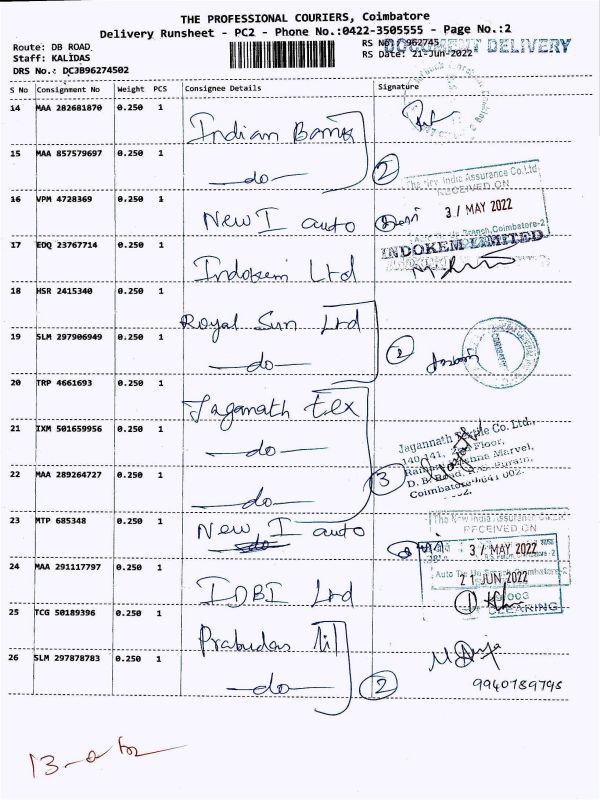 THE PROFESSIONAL COURIERS, Coimbatore
Delivery Runsheet - PC2 - Phone No.:0422-3505555 - Page No.:2
Route: DB ROAD
Staff: KALIDAS
DRS No.: DC3B96274502
RS No: 962745
RS Date: 21-Jun-2022
DOCUMENT DELIVERY
S No Consignment No Weight PCS Consignee Details Signature
14 MAA 282681870 0.250 1 Indian Bank
15 MAA 857579697 0.250 1 —do— 2
The New India Assurance Co.Ltd
RECEIVED ON
16 VPM 4728369 0.250 1 New I auto 31 MAY 2022
Coimbatore-2
17 EDQ 23767714 0.250 1 Indokem Ltd INDOKEM LIMITED
18 HSR 2415340 0.250 1 Royal Sun Ltd
19 SLM 297906949 0.250 1 —do— 2
20 TRP 4661693 0.250 1 Jaganath tex
21 IXM 501659956 0.250 1 —do—
Jagannath Textile Co. Ltd.,
140-141, Floor,
Marvel,
D. B. Road, R.S. Puram,
Coimbatore-641 002.
22 MAA 289264727 0.250 1 —do— 3
23 MTP 685348 0.250 1 New I auto
The New India Assurance Co.Ltd
RECEIVED ON
31 MAY 2022
24 MAA 291117797 0.250 1 IDBI Ltd
21 JUN 2022
CLEARING
25 TCG 50189396 0.250 1 Prabudas lil
26 SLM 297878783 0.250 1 —do— 2
9940789795